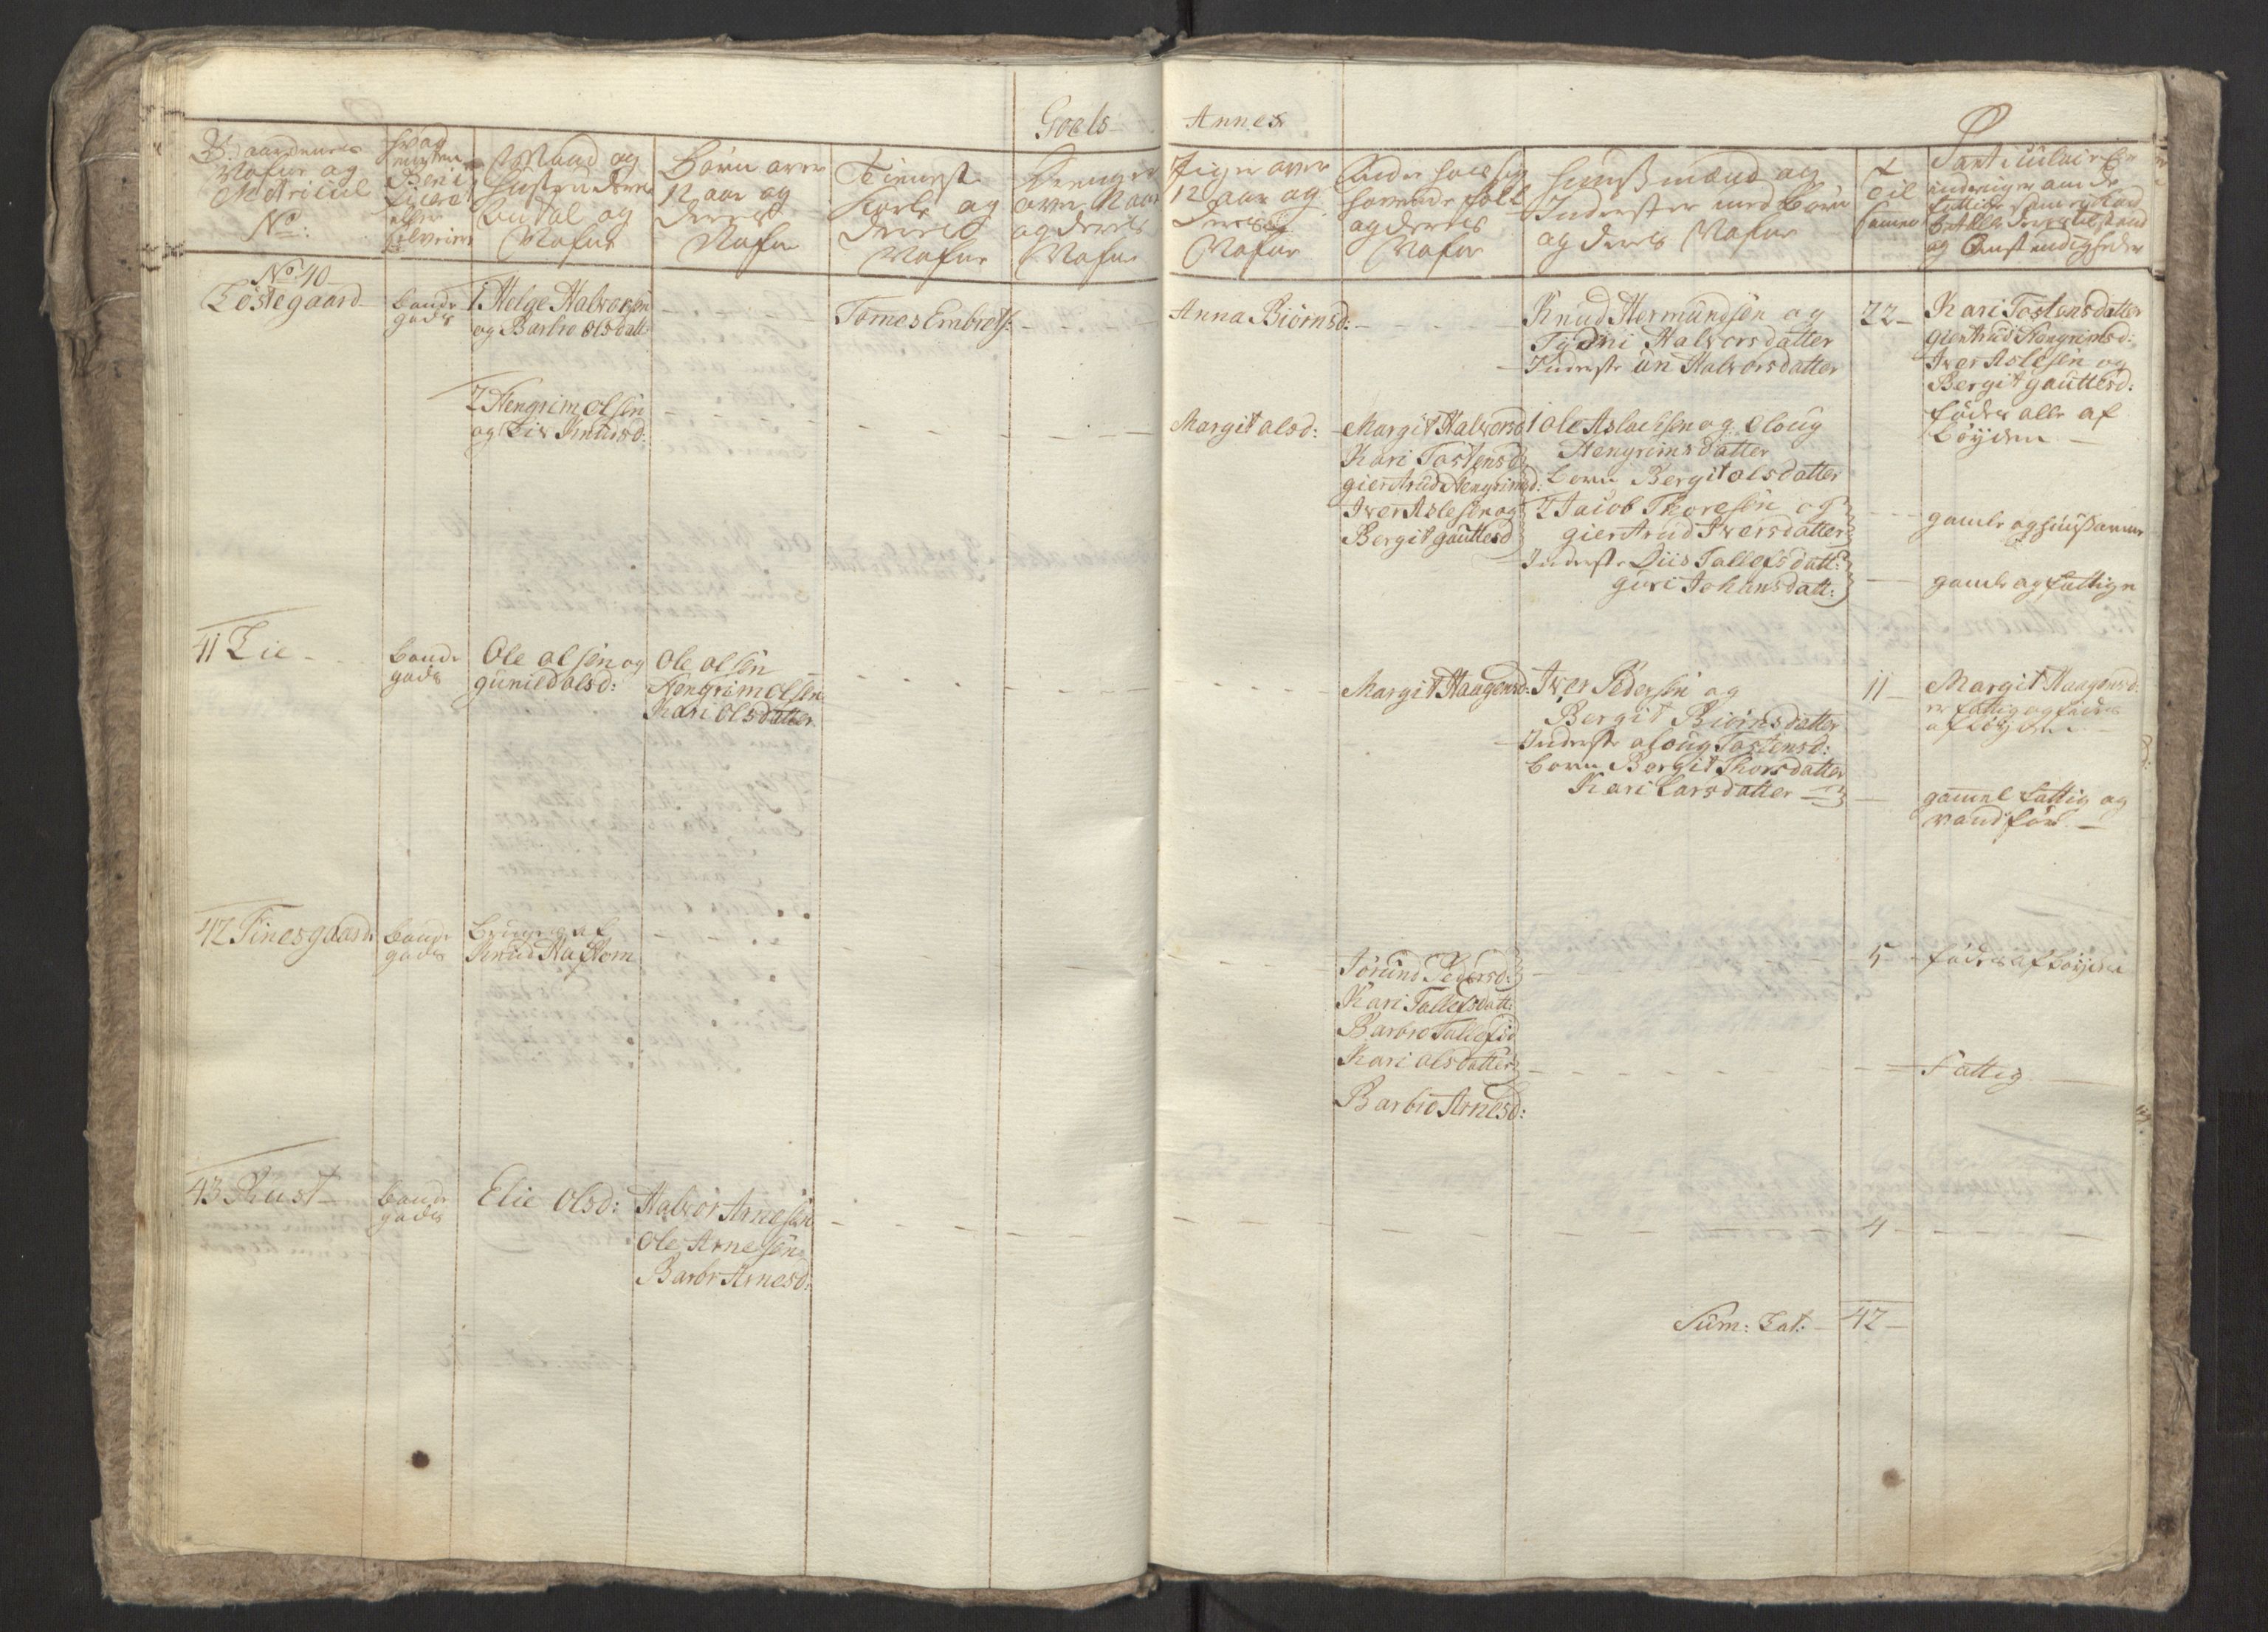 Goels Annex
Gaardenes
Nafne og
Matricul
No:
Hvad
enten
Beni
ficeret
eller
Mand og
Hustru deres
Antal og
Nafne
Børn over
12 aar og
deres
Nafne
Tieneste
Karle og
deres
Nafne
Drenge
over 12 aar
og deres
Nafne
Piger over
12 aar og
deres
Nafne
Andre hos sig
havende folk
og deres
Nafne
Huusmænd og
Inderster med børn
og deres Nafne
Til
sammen
Particulair Er
indringer om de
fattige som ey kand
betale deres tilstand
og Omstændigheder
No 40
Løstegaard
bonde
gods
1 Helge Halvorsen
og Barbro Olsdatt:
Tomes Embrets:
Anna Biörnsd:
Knud Hermundsen og
Halvorsdatter
Inderste Un Halvorsdatter
22
Kari Tostensdatter
gientrud Hengrimsd:
Iver Aslesen og
Bergit gauttesd:
fødes alle af
bøyden
2 Hengrim Olsen
og Liv Knudsd:
Margit olsd:
Margit Halvorsd
Kari Tostensd
giertrud Hengrimsd:
Iver Aslesen og
Bergit gauttesd
1 Ole Aslachsen og Oloug
Hengrimsdatter
born Bergit olsdatter
2 Jacob Thoresen og
giertrud Iversdatter
Inderste Diis Tallefsdatt:
guri Johansdatt:
gamle og huusarme
gamle og fattige
41 Lie
bonde
gods
Ole olsen og
gunild olsd:
Ole olsen
Hengrim olsen
Kari Olsdatter
Margit Haagensd:
Iver Pedersen og
Bergit Biörnsdatter
Inderste oloug Tostensd:
born Bergit Thorsdatter
Kari Larsdatter
11
Margit Haagensd:
er fattig og fødes
af bøyden
gammel fattig og
vandfør
42 Finesgaard
bonde
gods
bruges af
Knud Haftorn
Jörund Pedersd:
Kari Tallefsdatt:
Barbro Tallefsd
Kari olsdatter
Barbro Arnesd:
5
fødes af bøyden
Fattig
43 Rust
bonde
gods
Elie Olsd:
Halvor Arnesen
Ole Arnesen
Barbr Arnesd:
4
Sum: Lat: 42